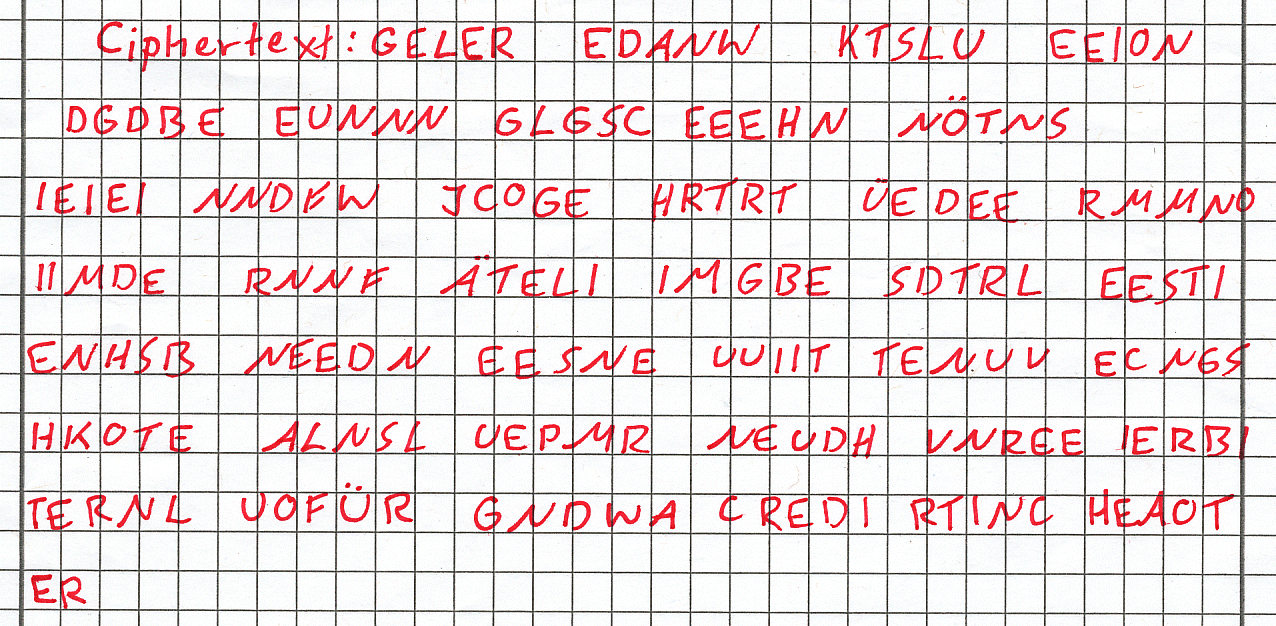 Ciphertext: GELER EDANW KTSLU EEION
DGDBE EUNNN GLGSC EEEHN NÖTNS
IEIEI NNDFW JCOGE HRTRT ÜEDEE RMMNO
IIMDE RNNF ÄTELI IMGBE SDTRL EESTI
ENHSB NEEDN EESNE UUIIT TENUU ECNGS
HKOTE ALNSL UEPMR NEUDH VNREE IERBI
TERNL UOFÜR GNDWA CREDI RTINC HEAOT
ER